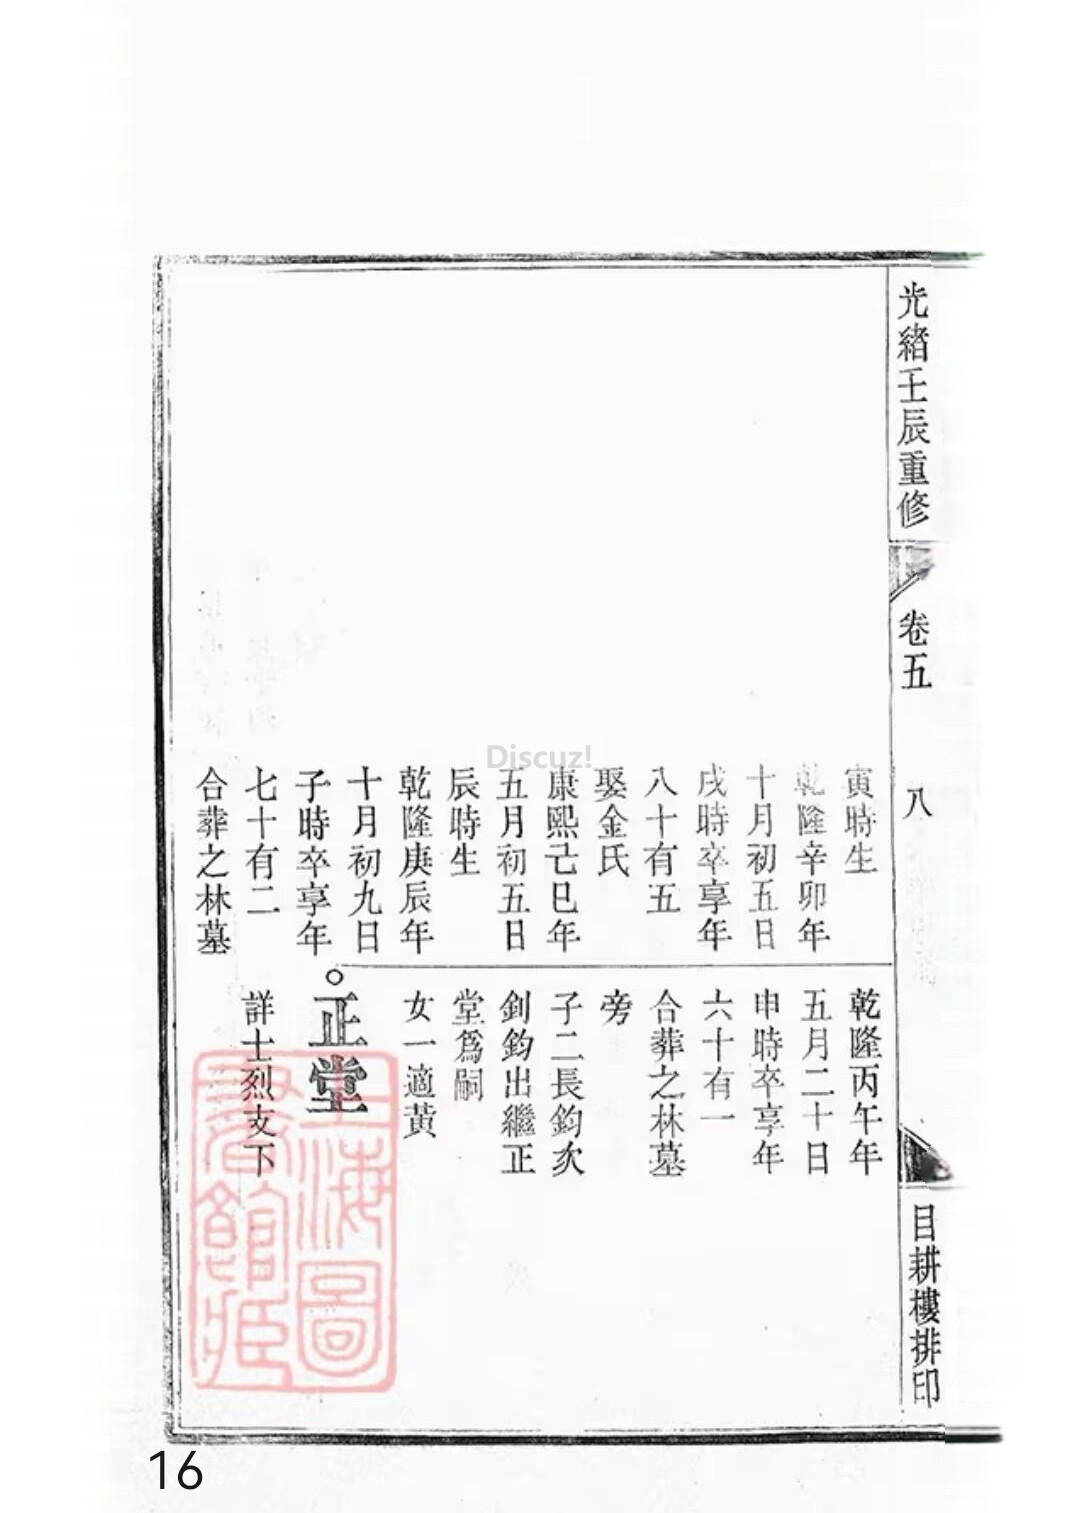 光緒壬辰重修
卷五
八
目耕樓排印
寅時生
乾隆辛卯年
十月初五日
戌時卒享年
八十有五
娶金氏
康熙己巳年
五月初五日
辰時生
乾隆庚辰年
十月初九日
子時卒享年
七十有二
合葬之林墓
乾隆丙午年
五月二十日
申時卒享年
六十有一
合葬之林墓
旁
子二長鈞次
釗鈞出繼正
堂爲嗣
女一適黃
正堂
詳士烈支下
上海圖
書館藏
Discuz!
16